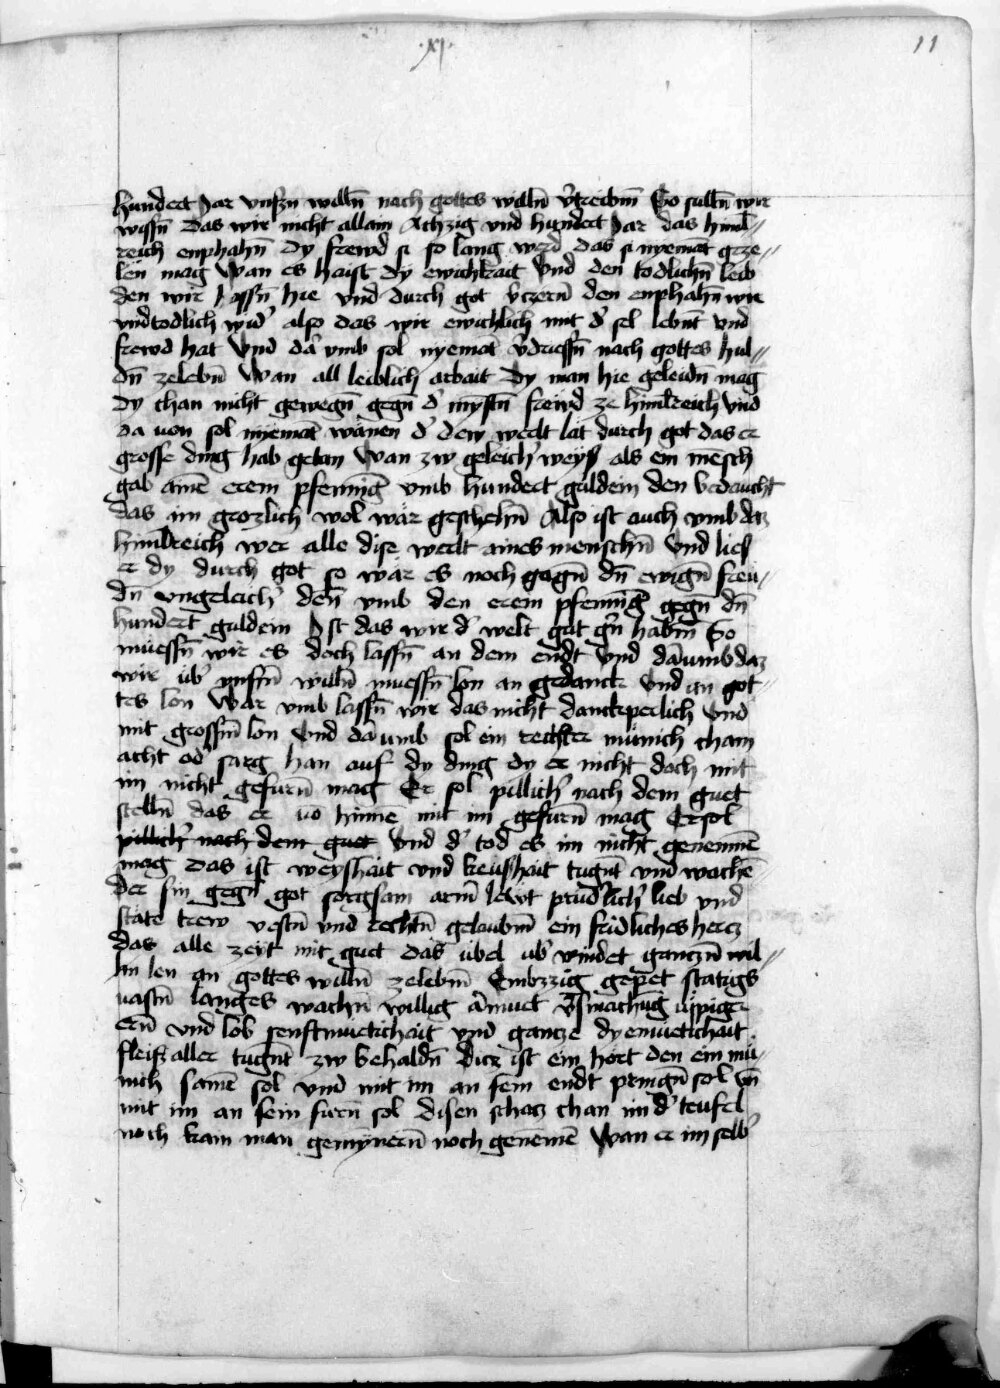 ·xj· 11
hundert Jar vnsñ willñ nach gottes willñ v̾treibm̃ So sullñ wir
wissñ das wir nicht allain Achzig vnd hundert Jar das himl⸗
reich enphahñ Dy frewd si so lang werd das si nyemat̾ geze⸗
len mag Wan es haist dy ewichkait Vnd den todlichñ leib
den wir lassñ hie vnd durch got v̾czerñ den enphahñ wir
vndtodlich wid̾ also das wir ewichlich mit d̾ sel lebnt̃ vnd
frewd hat Vnd da vmb sol nyemat̾ v̾driessñ nach gottes hul⸗
dñ zelebñ Wan all leiblich arbait Dy man hie geleidñ mag
Dy chan nicht gewegñ gegñ d̾ mynstñ frewd ze himlreich Vnd
da von sol nyemat̾ wänen d̾ dew werlt lät durch got das er
grosse ding hab getan Wan zw geleich̾ weys als ein mẽsch
gab ainẽ erem pfennĩg vmb hundert guldein den bedaucht
das im grozlich wol wär geschehñ Also ist auch vmb daz
himlreich wer alle dise werlt aines menschñ Vnd lies
er dy durch got so wär es noch gegñ dñ ewigñ freu⸗
dñ vngeleich̾ deñ vmb den erem pfennĩg gegñ dñ
hundert guldein Ist das wir d̾ welt gut gñ habm̃ So
müessñ wir es doch lassñ an dem endt Vnd dãumb daz
wir üb̾ vnsñ willñ muessñ lon an gedanck Vnd an got⸗
tes lon War vmb lassñ wir das nicht danckperlich Vnd
mit grossm̃ lon Vnd dãumb sol ein rechter münich cham
acht od̾ sarg han auf dy ding dy er nicht doch mit
im nicht gefürñ mag Er sol pillich̾ nach dem guet
stellñ das er vo hinnẽ mit im gefürñ mag Er sol
pillich̾ nach dem guet Vnd d̾ tod es im nicht genemmẽ
mag Das ist weyshait vnd keüshait tugñt vnd wachẽ⸗
der sin gegñ got sorgsam armñ lewt prüd̾lich̾ lieb vnd
state trew vestñ vnd rechtñ gelaubm̃ ein fridliches hercz
das alle zeyt mit guet das übel üb̾windet ganczñ wil⸗
lin len an gottes willñ zelebm̃ Embzzig gepet statigs
vastñ langes wachñ willig ãrmuet v̾smachũg üppiger
erñ vnd lob senftmüetichait vnd gancze dyemüetichait
fleis aller tugñt zw behaldñ Dicz ist ein hort den ein mü⸗
nich samẽ sol vnd mit im an sein endt pringñ sol Vñ
mit im an sein fürñ sol Disen schacz chan im d̾ teufel
noch kain man gemynerñ noch genemẽ Wan er im selb̾